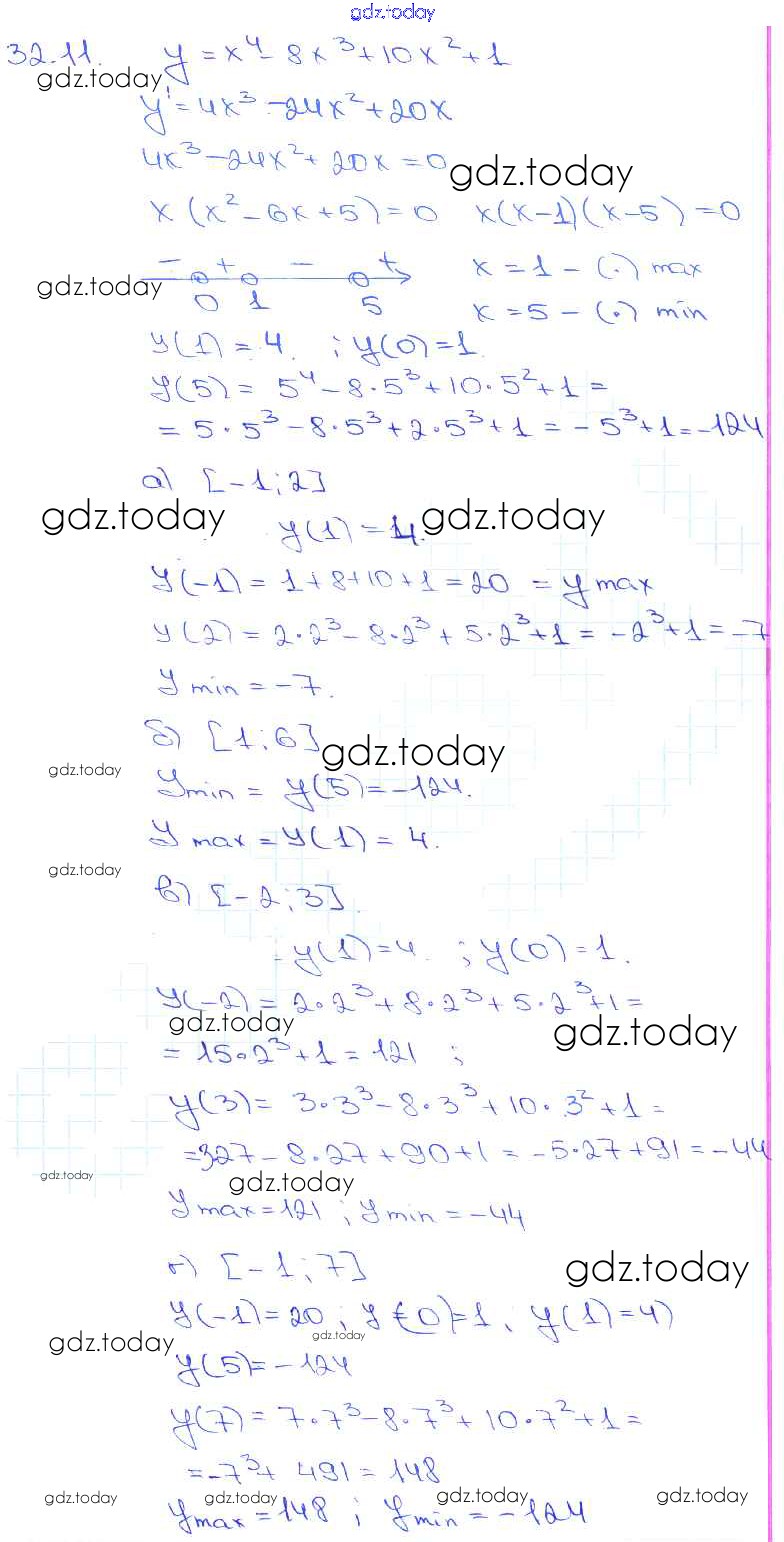 gdz.today
32.11. y = x⁴ - 8x³ + 10x² + 1
gdz.today
y' = 4x³ - 24x² + 20x
4x³ - 24x² + 20x = 0
gdz.today
x (x² - 6x + 5) = 0 x(x-1)(x-5) = 0
- + - +
gdz.today
x = 1 - (.) max
0 1 5
x = 5 - (.) min
y(1) = 4. ; y(0) = 1.
y(5) = 5⁴ - 8·5³ + 10·5² + 1 =
= 5·5³ - 8·5³ + 2·5³ + 1 = -5³ + 1 = -124
а) [-1; 2]
gdz.today gdz.today
y(1) = 4.
y(-1) = 1 + 8 + 10 + 1 = 20 = y max
y(2) = 2·2³ - 8·2³ + 5·2³ + 1 = -2³ + 1 = -7
y min = -7.
б) [1; 6]
gdz.today
gdz.today
y min = y(5) = -124.
y max = y(1) = 4.
gdz.today
в) [-2; 3].
y(1) = 4. ; y(0) = 1.
y(-2) = 2·2³ + 8·2³ + 5·2³ + 1 =
gdz.today gdz.today
= 15·2³ + 1 = 121 ;
y(3) = 3·3³ - 8·3³ + 10·3² + 1 =
= 327 - 8·27 + 90 + 1 = -5·27 + 91 = -44
gdz.today gdz.today
y max = 121 ; y min = -44
г) [-1; 7]
gdz.today
y(-1) = 20 ; y(0) = 1 ; y(1) = 4)
gdz.today
gdz.today
y(5) = -124
y(7) = 7·7³ - 8·7³ + 10·7² + 1 =
= -7³ + 491 = 148
gdz.today gdz.today gdz.today gdz.today
y max = 148 ; y min = -124